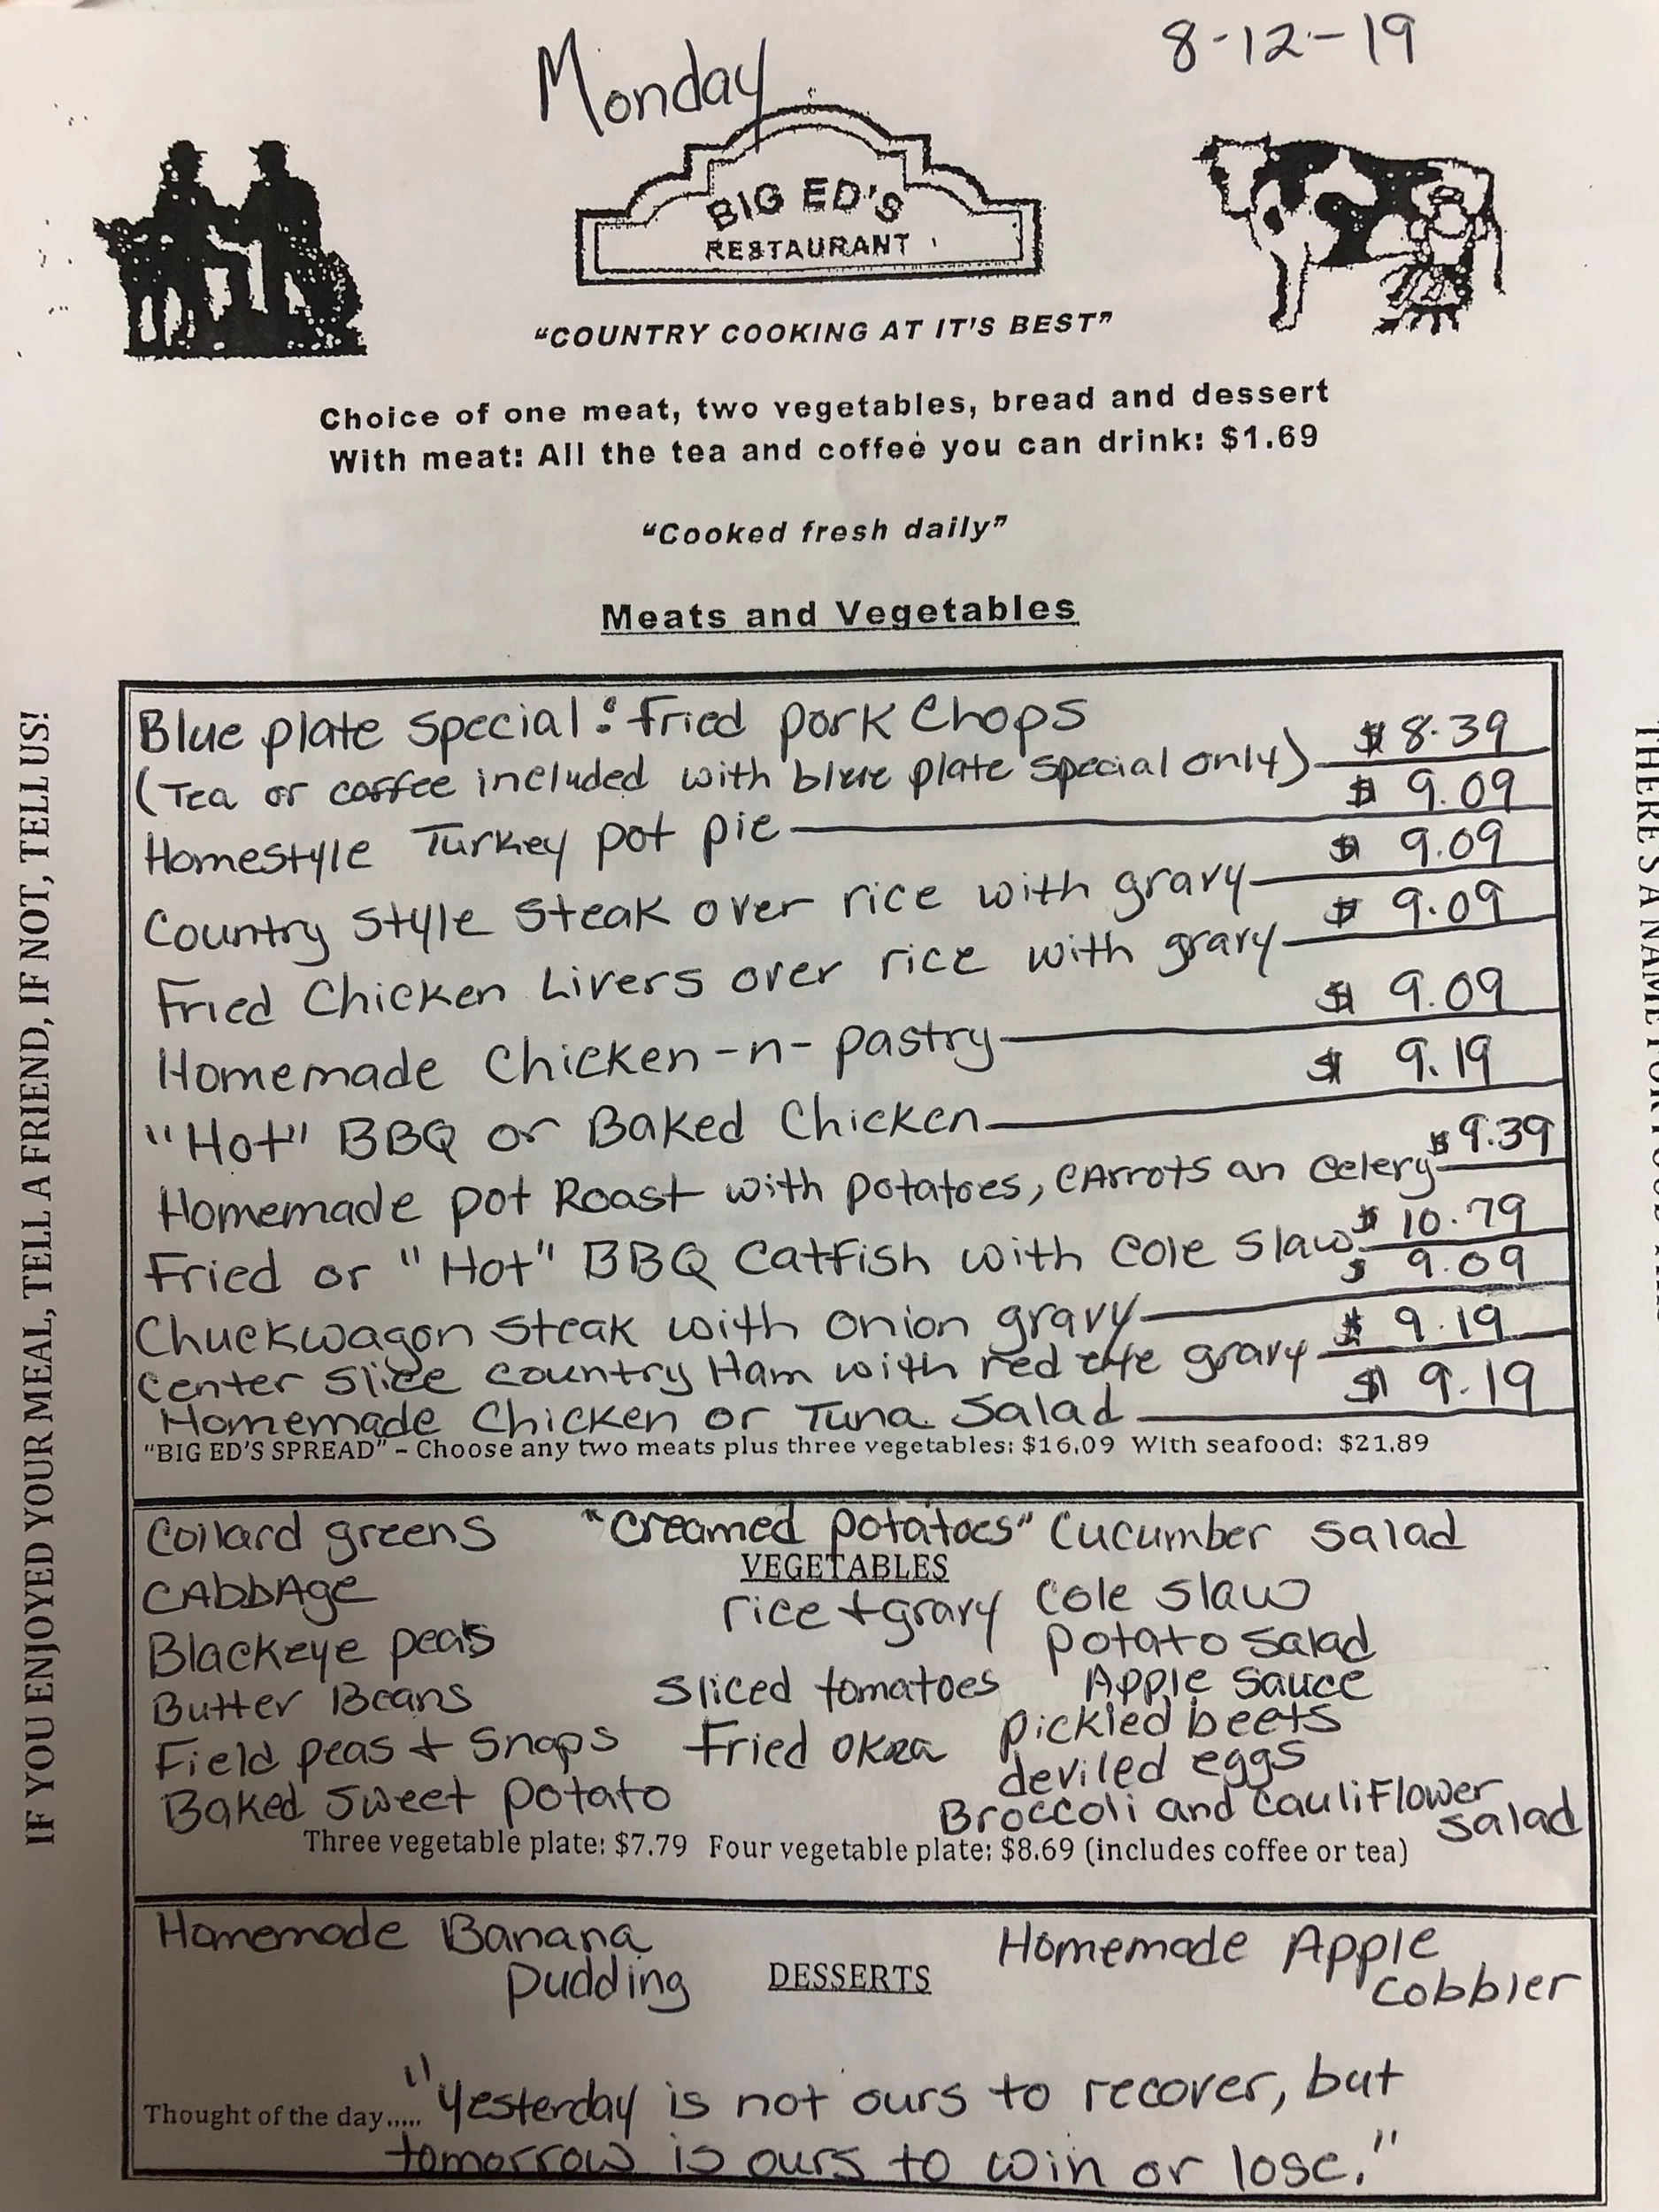 Monday
8-12-19
BIG ED'S
RESTAURANT
"COUNTRY COOKING AT IT'S BEST"
Choice of one meat, two vegetables, bread and dessert
With meat: All the tea and coffee you can drink: $1.69
"Cooked fresh daily"
Meats and Vegetables
Blue plate special: Fried pork Chops
(Tea or coffee included with blue plate special only) $8.39
Homestyle Turkey pot pie $9.09
Country style steak over rice with gravy $9.09
Fried Chicken Livers over rice with gravy $9.09
Homemade Chicken-n-pastry $9.09
"Hot" BBQ or Baked Chicken $9.19
Homemade pot Roast with potatoes, CArrots an celery $9.39
Fried or "Hot" BBQ Catfish with cole slaw $10.79
Chuckwagon steak with onion gravy $9.09
Center slice country Ham with red eye gravy $9.19
Homemade Chicken or Tuna Salad $9.19
"BIG ED'S SPREAD" – Choose any two meats plus three vegetables: $16.09 With seafood: $21.89
Collard greens "creamed potatoes" Cucumber salad
VEGETABLES
CAbbAge rice + gravy Cole slaw
Blackeye peas potato salad
Butter Beans sliced tomatoes Apple sauce
Field peas + snaps Fried okra pickled beets
deviled eggs
Baked sweet potato Broccoli and cauliflower
salad
Three vegetable plate: $7.79 Four vegetable plate: $8.69 (includes coffee or tea)
Homemade Banana Homemade Apple
pudding DESSERTS cobbler
Thought of the day..... "Yesterday is not ours to recover, but
tomorrow is ours to win or lose."
IF YOU ENJOYED YOUR MEAL, TELL A FRIEND, IF NOT, TELL US!
THERE'S A NAME FOR FOOD